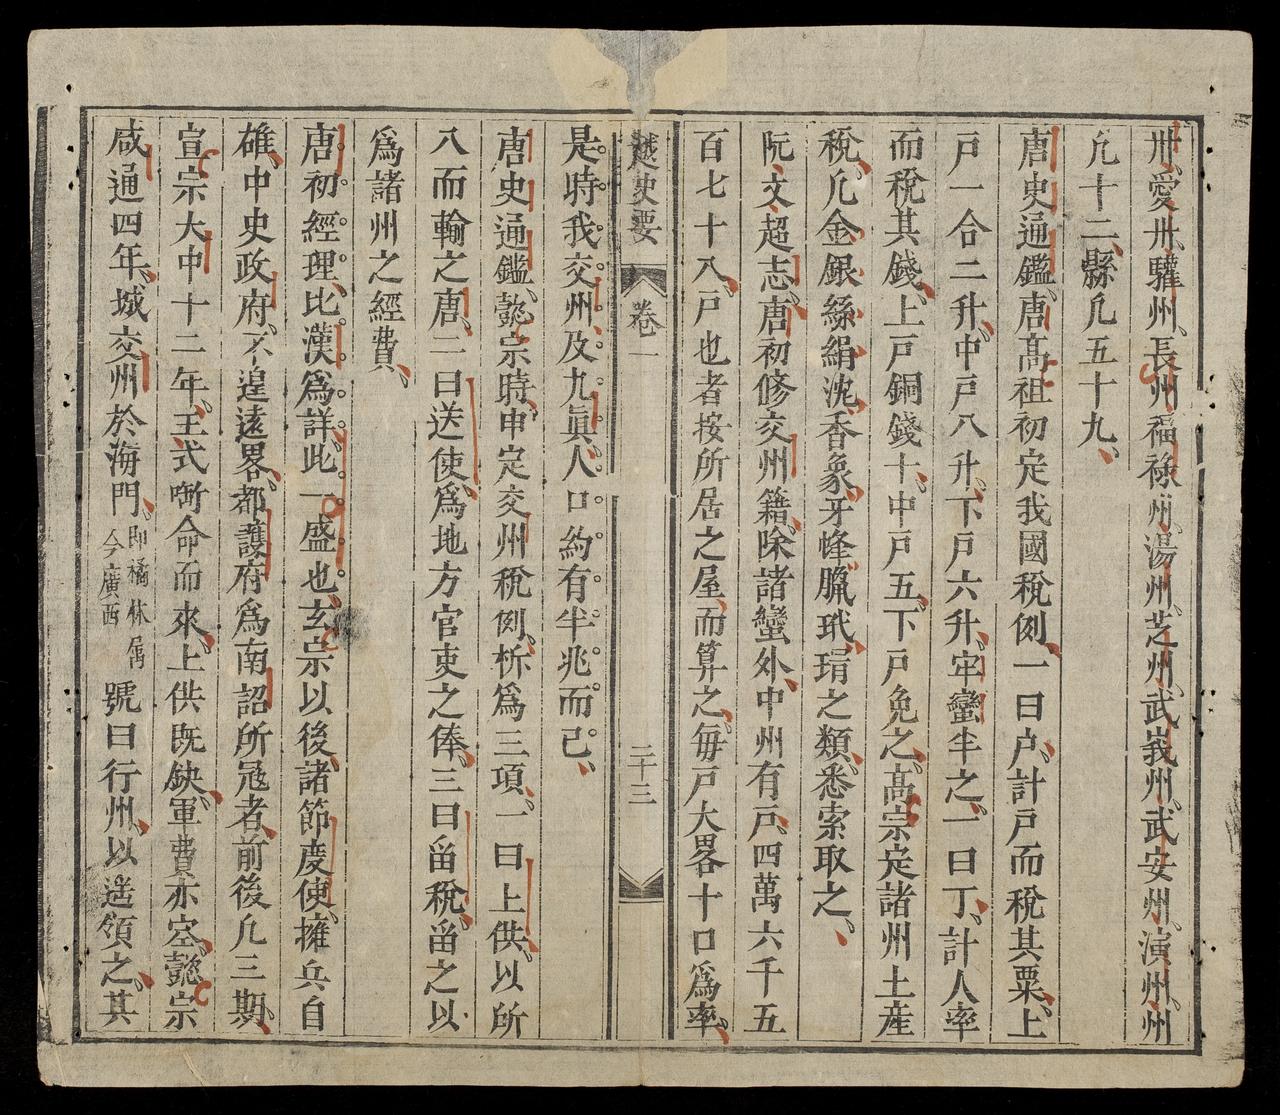 卅、愛卅、驩州、長州、福祿州、湯州、芝州、武峩州、武安州、演州、州
凢十二、縣凢五十九、
唐史通鑑、唐髙祖初定我國稅例、一曰户、計戸而稅其粟、上
戸一合二升、中戸八升、下戸六升、牢蠻半之、一曰丁、計人率
而稅其錢、上戸銅錢十、中戸五、下戸免之、髙宗定諸州土産
稅、凢金銀絲絹沈香象牙峰臘玳瑁之類、悉索取之、
阮文超志、唐初修交州籍、除諸蠻外、中州有戸、四萬六千五
百七十八、戸也者按所居之屋、而算之、毎戸大畧十口爲率、
越史要 卷一 二十三
是時我交州及九眞人口約有半兆而已、
唐史通鑑、懿宗時、申定交州稅例、析爲三項、一曰上供、以所
入而輸之唐、二曰送使、爲地方官吏之俸、三曰畱稅、畱之以
爲諸州之經費、
唐初經理、比漢爲詳、此一盛也、玄宗以後、諸節度使、擁兵自
雄、中史政府、不遑遠畧、都護府爲南詔所冦者、前後凢三期、
宣宗大中十二年、王式啣命而來、上供既缺、軍費亦窒、懿宗
咸通四年、城交州於海門、即橘林属今廣西 號曰行州、以遥領之、其